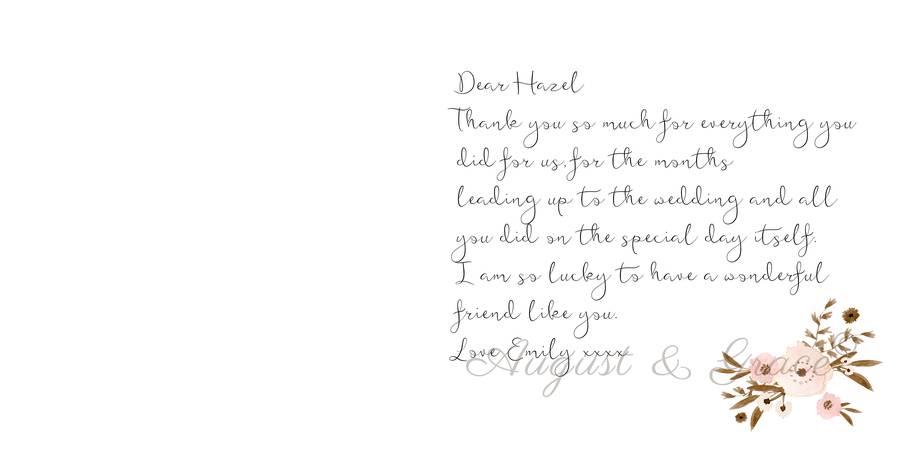 Dear Hazel
Thank you so much for everything you
did for us, for the months
leading up to the wedding and all
you did on the special day itself.
I am so lucky to have a wonderful
friend like you.
Love Emily xxxx
August & Grace